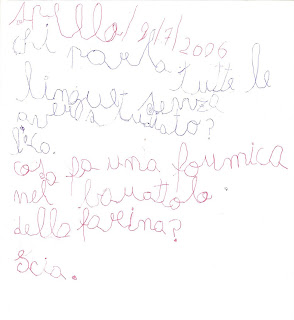 21/7/2006
chi parla tutte le
lingue senza
tudiato?
l'eco.
cosa fa una foumica
nel barattolo
della farina?
Scia.